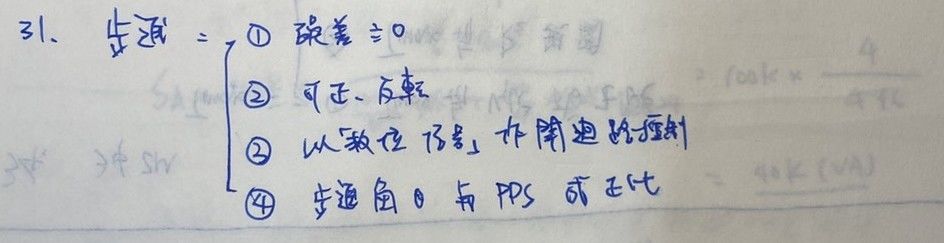 31. 步進 = ① 誤差≒0
② 可正、反転
③ 以「數位信号」作開迴路控制
④ 步進角θ与PPS成正比